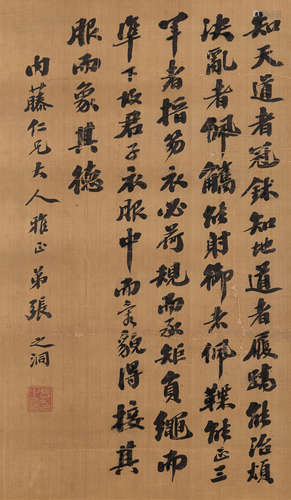 知天道者冠鉥知地道者履蹻能治煩
決亂者佩觿能射御者佩韘能正三
軍者搢笏衣必荷規而承矩負繩而
準下故君子衣服中而容貌得接其
服而象其德
内藤仁兄大人雅正弟張之洞